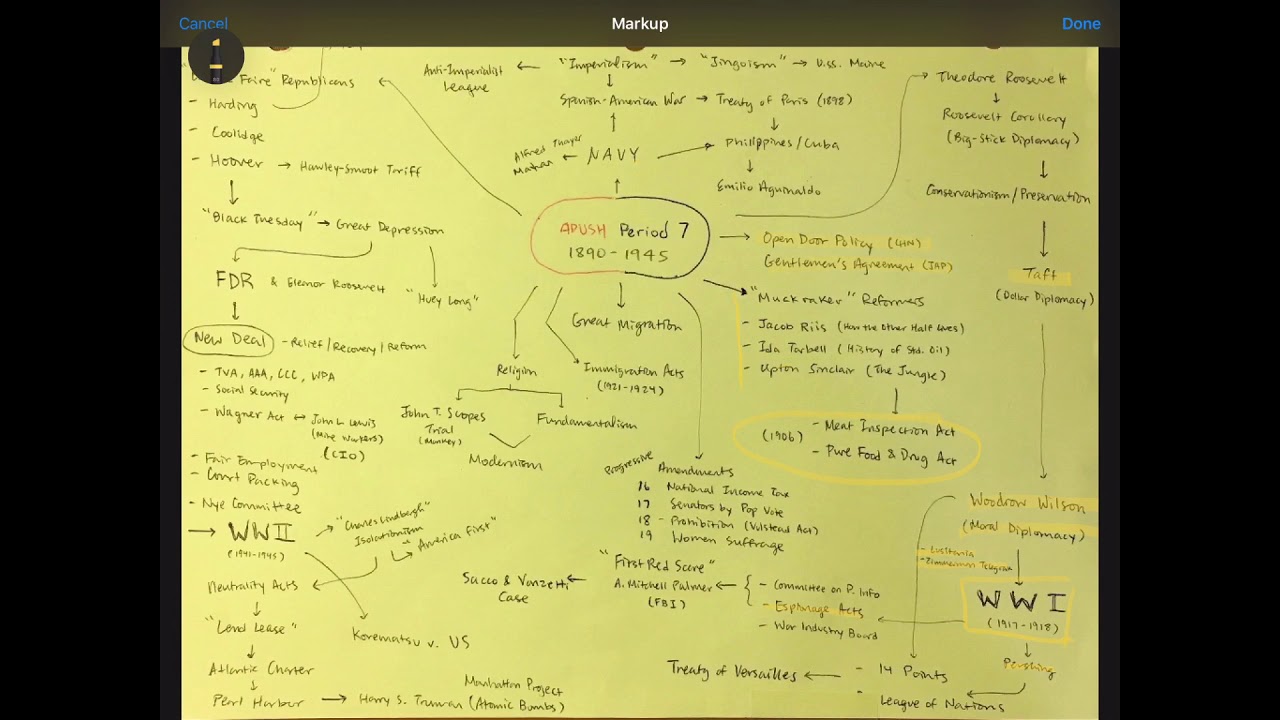 Cancel
Markup
Done
Faire" Republicans
- Harding
- Coolidge
- Hoover → Hawley-Smoot Tariff
"Black Tuesday" → Great Depression
FDR & Eleanor Roosevelt
"Huey Long"
New Deal - Relief/Recovery/Reform
- TVA, AAA, CCC, WPA
- Social Security
- Wagner Act ↔ John L. Lewis
(Mine Workers)
(CIO)
- Fair Employment
- Court Packing
- Nye Committee
→ WWII
(1941-1945)
→ "Charles Lindbergh"
Isolationism
"America First"
Neutrality Acts
"Lend Lease"
Korematsu v. US
Atlantic Charter
Perl Harbour → Harry S. Truman
Manhattan Project
(Atomic Bombs)
Anti-Imperialist
League
← "Imperialism" → "Jingoism" → U.S.S. Maine
Spanish-American War → Treaty of Paris (1898)
Alfred Thayer
Mahan
← NAVY
Philippines/Cuba
Emilio Aguinaldo
APUSH Period 7
1890-1945
Great Migration
Religion
Immigration Acts
(1921-1924)
John T. Scopes
Trial
(Monkey)
Fundamentalism
Modernism
Progressive Amendments
16 National Income Tax
17 Senators by Pop Vote
18 - Prohibition (Volstead Act)
19 Women Suffrage
"First Red Scare"
Sacco & Vanzetti
Case
← A. Mitchell Palmer ←
(FBI)
- Committee on P. Info
- Espionage Acts
- War Industry Board
Theodore Roosevelt
Roosevelt Corollary
(Big-Stick Diplomacy)
Conservationism/Preservation
Taft
(Dollar Diplomacy)
→ Open Door Policy (CHN)
Gentlemen's Agreement (JAP)
"Muckraker" Reformers
- Jacob Riis (How the Other Half Lives)
- Ida Tarbell (History of Std. Oil)
- Upton Sinclair (The Jungle)
(1906)
- Meat Inspection Act
- Pure Food & Drug Act
Woodrow Wilson
(Moral Diplomacy)
- Lusitania
- Zimmerman Telegram
WWI
(1917-1918)
Pershing
Treaty of Versailles ← - 14 Points
- League of Nations